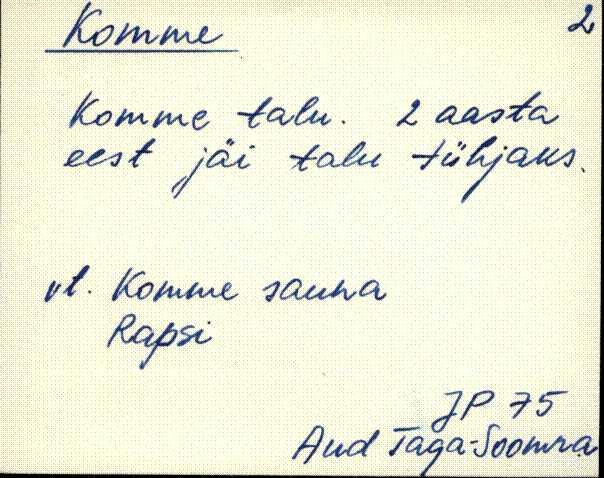 Komme 2
Komme talu. 2 aasta
eest jäi talu tühjaks.
vt. Komme sauna
Rapsi
JP 75
Aud Taga-Soomra